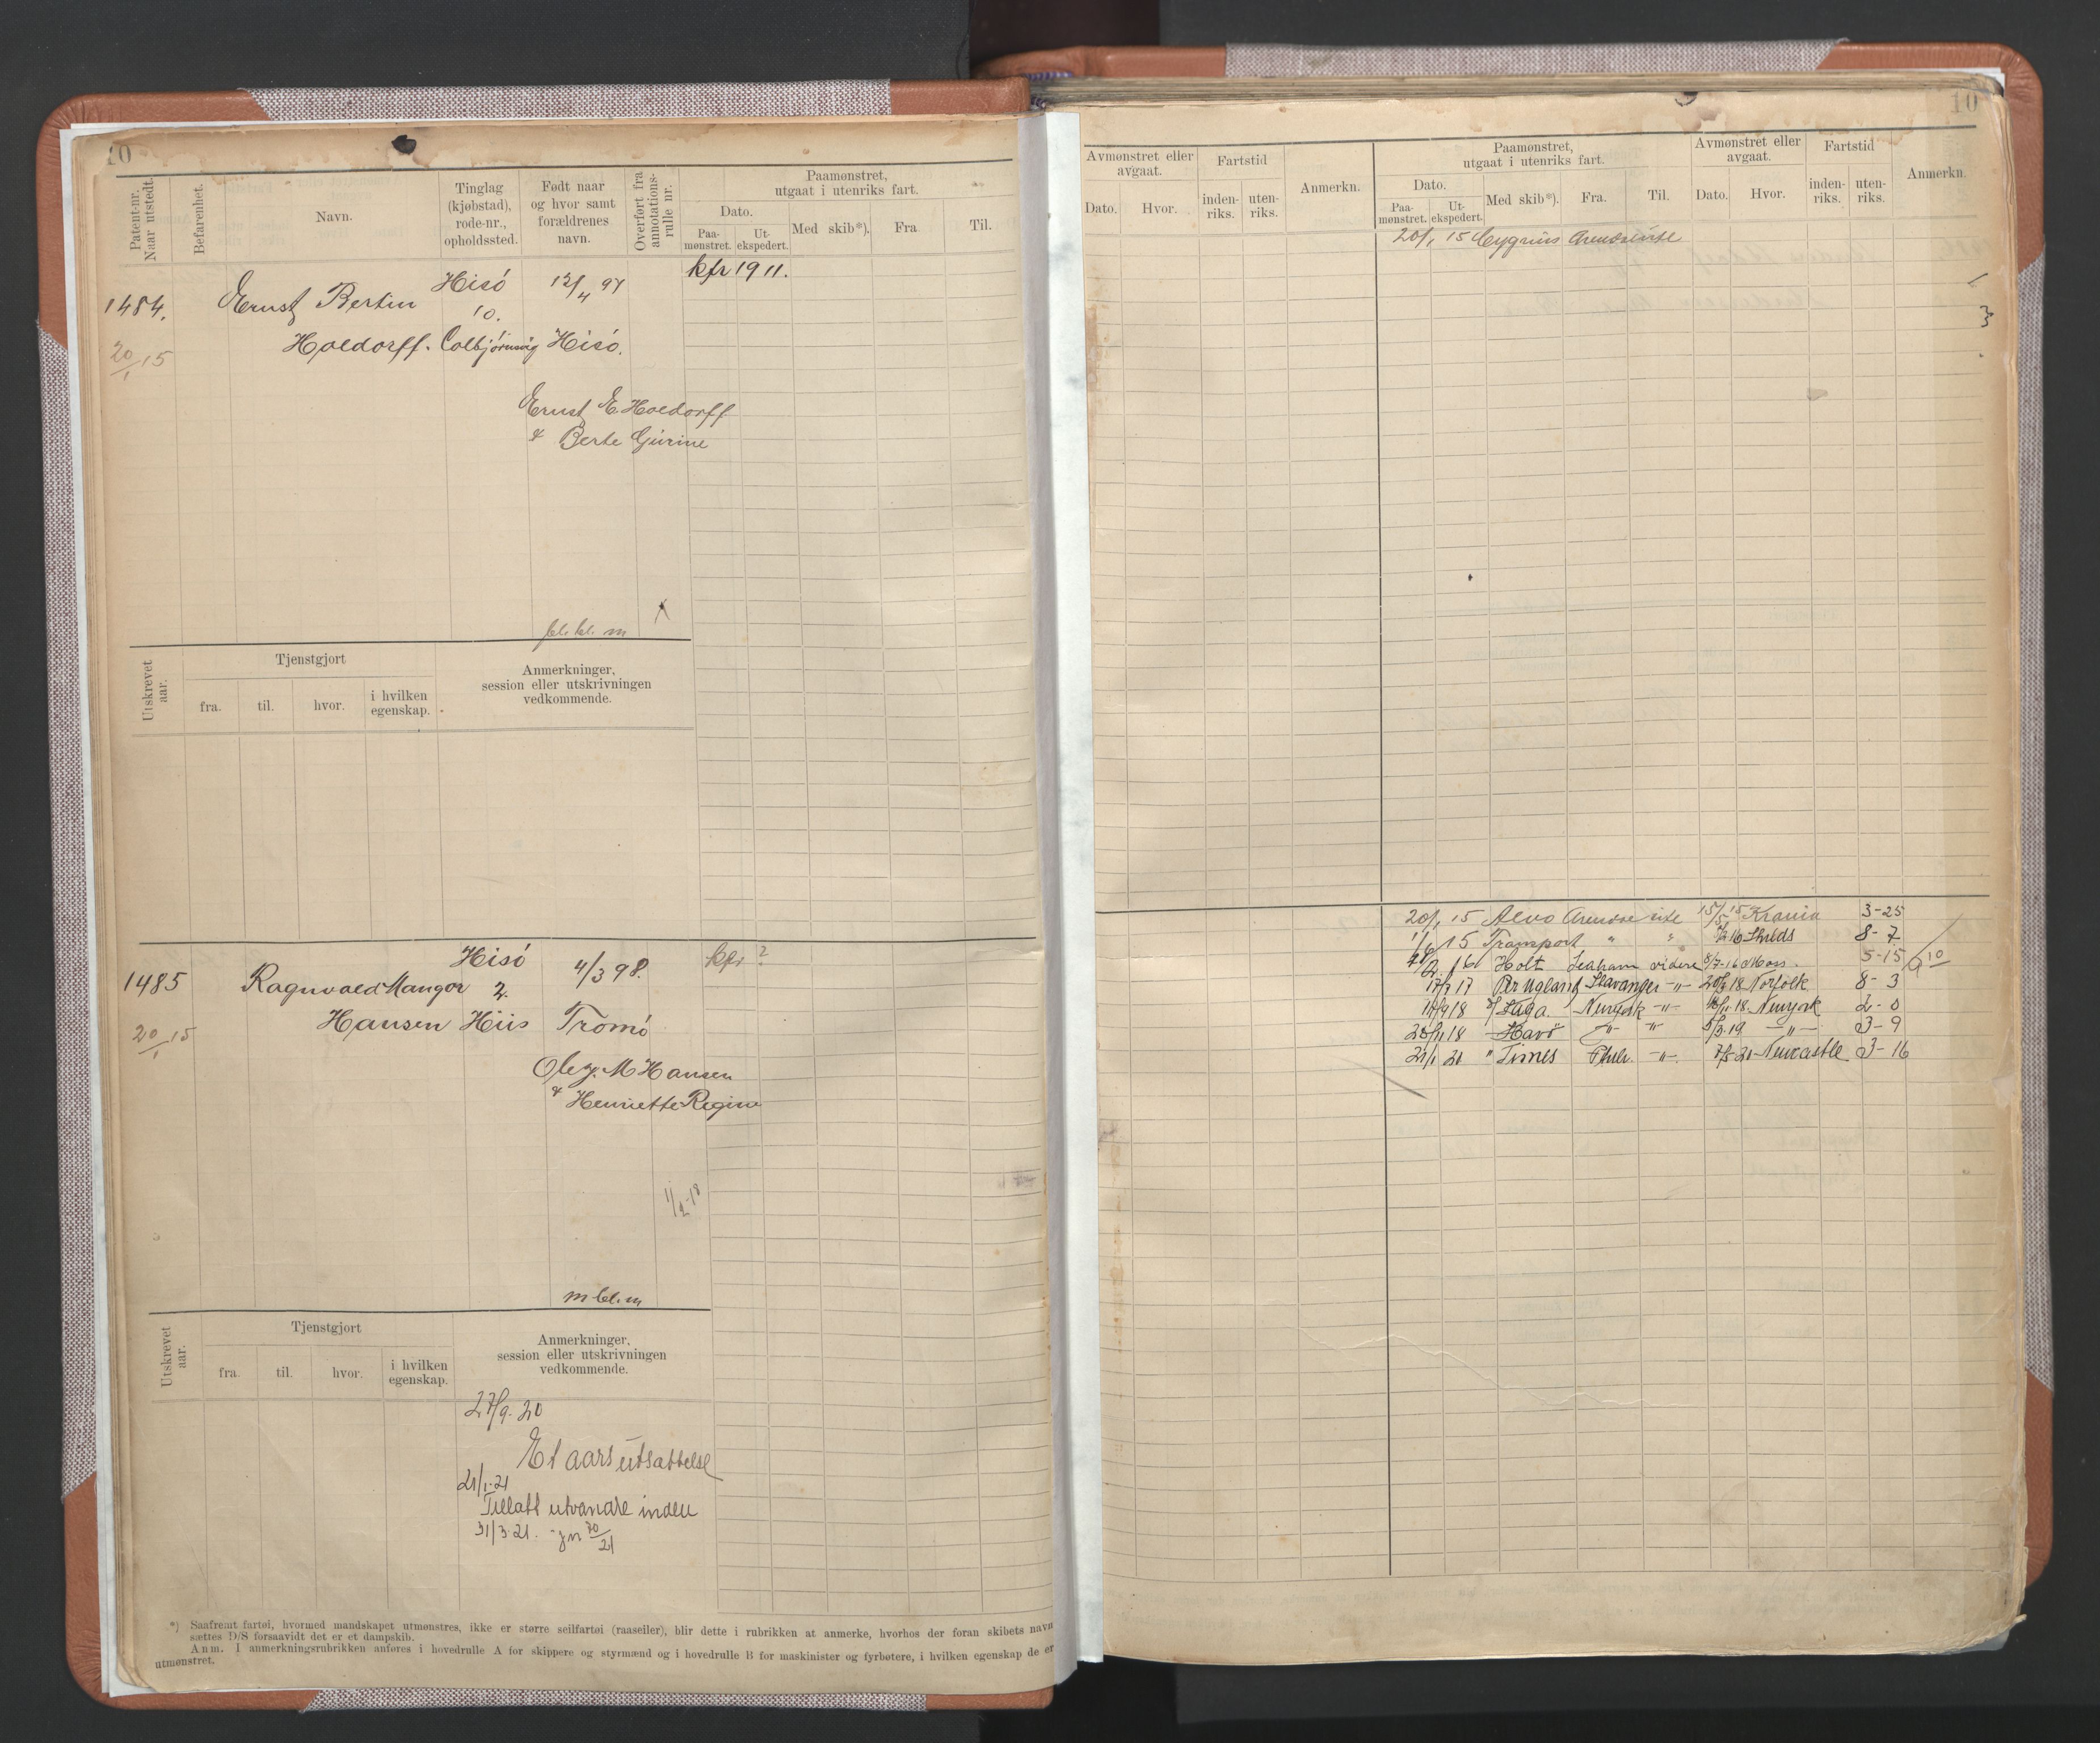 10
Patent-nr.
Naar utstedt.
Befarenhet.
Navn.
Tinglag
(kjøbstad),
rode-nr.,
opholdssted.
Født naar
og hvor samt
forældrenes
navn.
Overført fra
annotations-
rulle nr.
Paamønstret,
utgaat i utenriks fart.
Dato.
Paa-
mønstret.
Ut-
ekspedert.
Med skib*).
Fra
Til.
1484.
20/1 15
Ernst Bertin
Holdorff.
Hisö
10.
Colbjørnsvig
12/4 97
Hisö.
Ernst E. Holdorff
& Berte Gurine
kfr 1911.
bl. bl. m
Utskrevet
aar.
Tjenstgjort
fra.
til.
hvor.
i hvilken
egenskap.
Anmerkninger,
session eller utskrivningen
vedkommende.
1485
20/1 15
Ragnvald Mangor
Hansen
Hisö
2.
Hiis
4/3 98.
Tromö
M Hansen
& Henriette Regine
kfr ?
1/2-18
m bl. m
Utskrevet
aar.
Tjenstgjort
fra.
til.
hvor.
i hvilken
egenskap.
Anmerkninger,
session eller utskrivningen
vedkommende.
27/9. 20
Et aars utsættelse
21/1-21
Tillatt utvandre inden
31/3 21. jn 70/21
*) Saafremt fartøi, hvormed mandskapet utmønstres, ikke er større seilfartøi (raaseiler), blir dette i rubrikken at anmerke, hvorhos der foran skibets navn
sættes D/S forsaavidt det er et dampskib.
Anm. I anmerkningsrubrikken anføres i hovedrulle A for skippere og styrmænd og i hovedrulle B for maskinister og fyrbøtere, i hvilken egenskap de er
utmønstret.
10
Avmønstret eller
avgaat.
Dato.
Hvor.
Fartstid
inden-
riks.
uten-
riks.
Anmerkn.
Paamønstret,
utgaat i utenriks fart.
Dato.
Paa-
mønstret.
Ut-
ekspedert.
Med skib*).
Fra.
Til.
Avmønstret eller
avgaat.
Dato.
Hvor.
Fartstid
inden-
riks.
uten-
riks.
Anmerkn.
20/1 15 Cygnus Arendal ute
20/1 15 Alvo Arendal ute 15/5 15 Krania 3-25
1/6 15 Transport " " 16 Shilds 8-7
2.16 Holt Seaham videre 8/7-16 Moss. 5-15
17/7 17 Per Ugland Stavanger -"- 20/3 18 Norfolk 8-3
18 Saga. Newyork -"- 18/11-18. Newyork 2-0
18 Havö -"- -"- 5/3.19 -"- 3-9
21/1 21 " Times Phil. -"- 7/5-21 Newcastle 3-16